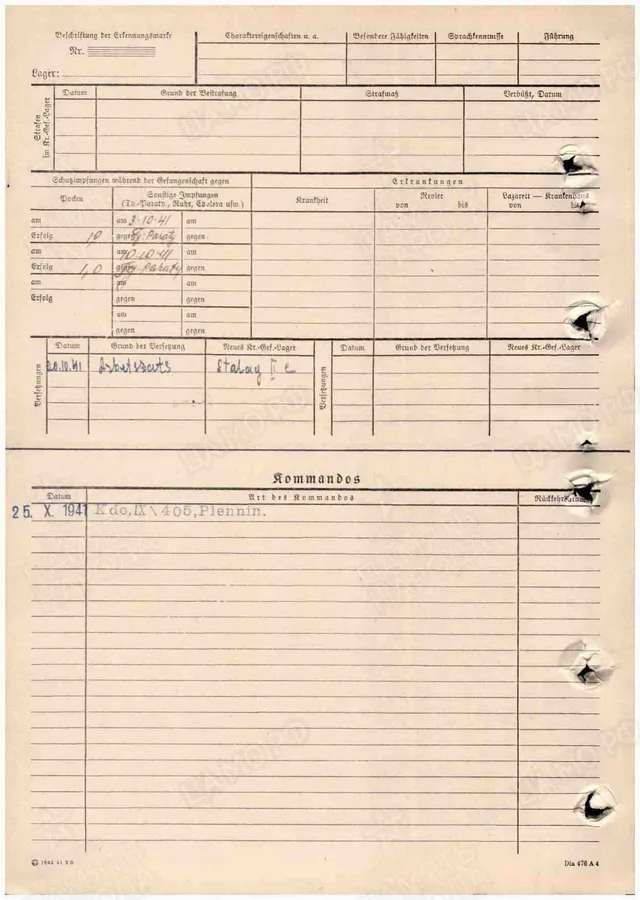 Beschriftung der Erkennungsmarke
Nr.
Lager:
Charaktereigenschaften u. a.
Besondere Fähigkeiten
Sprachkenntnisse
Führung
Strafen
im Kr.-Gef.-Lager
Datum
Grund der Bestrafung
Strafmaß
Verbüßt, Datum
Schutzimpfungen während der Gefangenschaft gegen
Erkrankungen
Pocken
Sonstige Impfungen
(Ty.-Paraty., Ruhr, Cholera usw.)
Krankheit
Revier
von bis
Lazarett — Krankenhaus
von bis
am am 3.10.41 am
Erfolg gegen Ty. Paraty gegen
am am 10.10.41 am
Erfolg gegen Ty. Paraty gegen
am am am
Erfolg gegen gegen
am am
gegen gegen
Versetzungen
Datum
Grund der Versetzung
Neues Kr.-Gef.-Lager
Versetzungen
Datum
Grund der Versetzung
Neues Kr.-Gef.-Lager
20.10.41 Stalag II C
Kommandos
Datum
Art des Kommandos
25. X. 1941 Kdo,IX\405,Plennin.
Din 476 A 4